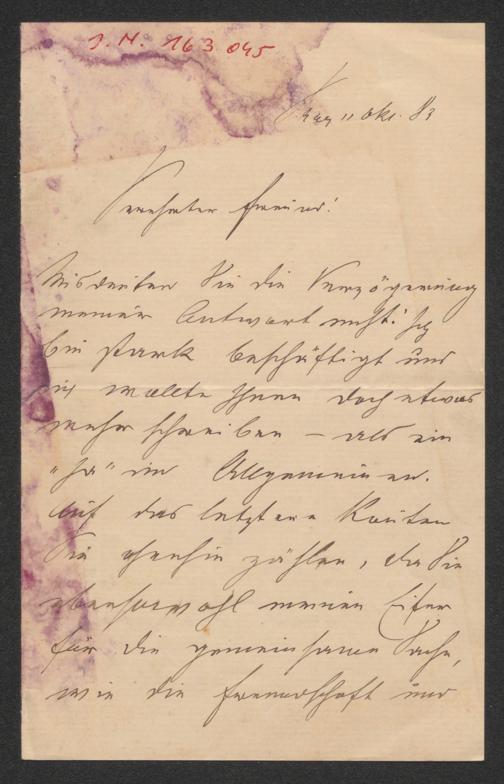 J. N. 163 045
Prag 11 Okt. 83
Verehrter Freund!
Misdeuten Sie die Verzögerung
meiner Antwort nicht! Ich
bin stark beschäftigt und
ich wollte Ihnen doch etwas
mehr schreiben – als ein
"Ja" im Allgemeinen.
Auf das letztere konnten
Sie ohnehin zählen, da Sie
ebensowohl meinen Eifer
für die gemeinsame Sache,
wie die Freundschaft und